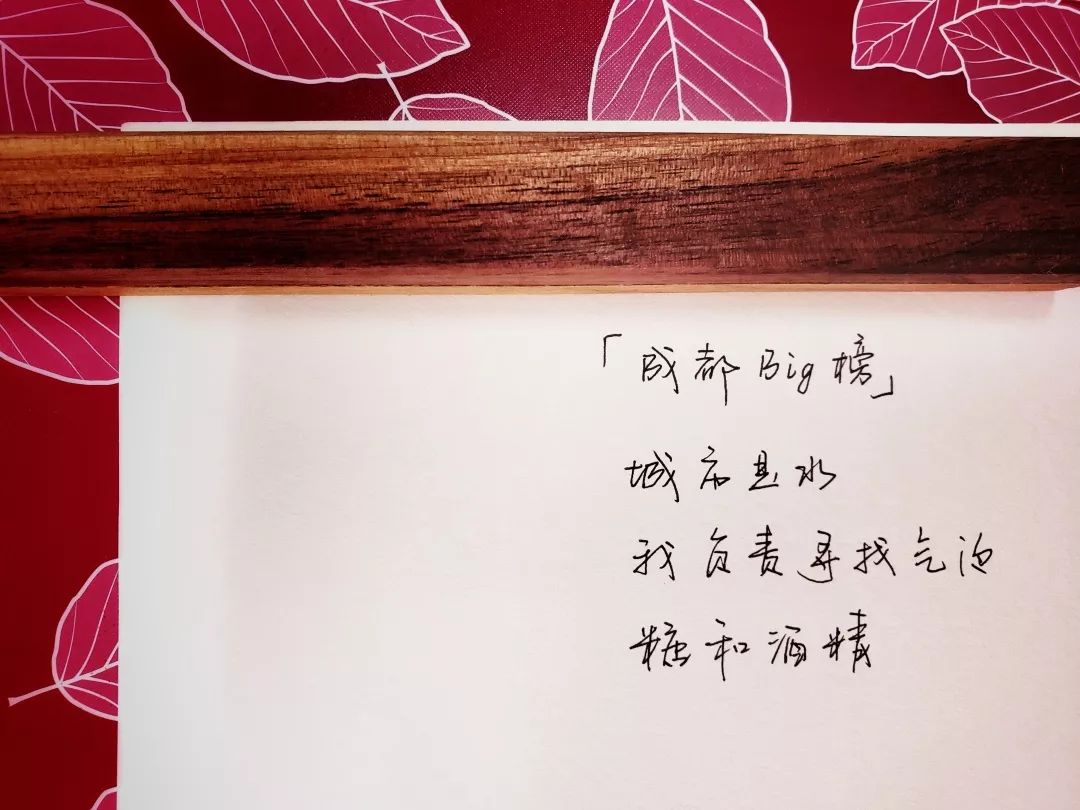 「成都Big榜」
城市是水
我负责寻找气泡
糖和酒精